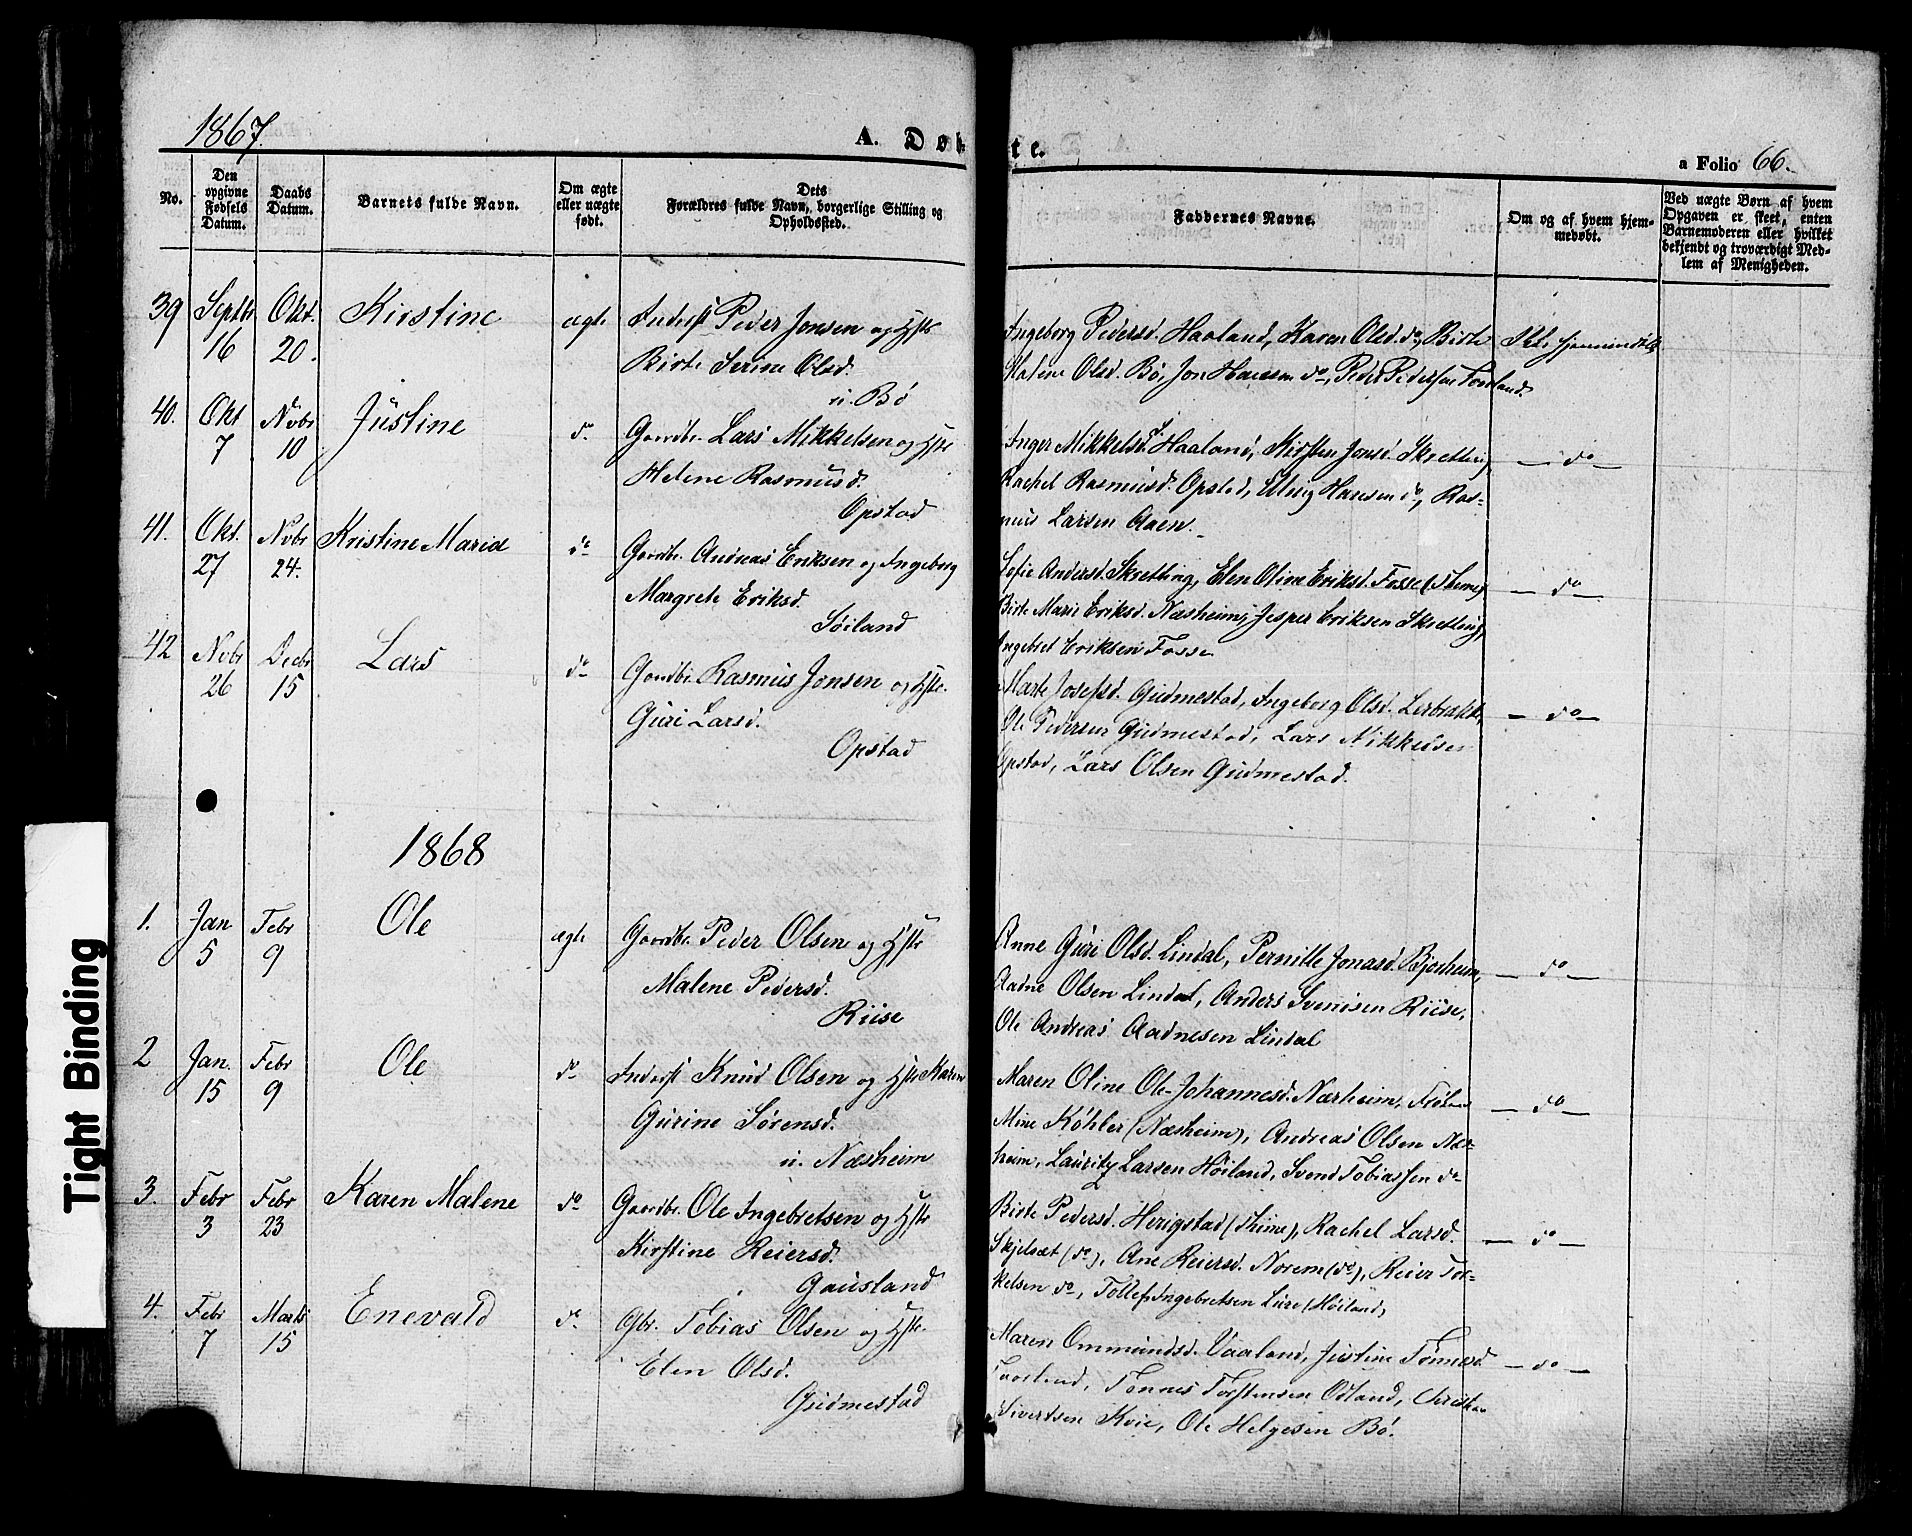 1867.
A. Døbte.
a Folio 66.
No.
Den opgivne Fødsels Datum.
Daabs Datum.
Barnets fulde Navn.
Om ægte eller uægte født.
Dets Forældres fulde Navn, borgerlige Stilling og Opholdssted.
Faddernes Navne.
Om og af hvem hjemmedøbt.
Ved uægte Børn af hvem Opgaven er skeet, enten Barnemoderen eller hvilket bekjendt og troværdigt Medlem af Menigheden.
39 Septbr 16 Okt. 20. Kirstine ægte Inderst Peder Jonsen og Hstr
Birte Serine Olsd.
u. Bø
Ingeborg Pedersd. Haaland, Karen Olsd. do, Birte
Malene Olsd. Bø, Jon Hansen do, Peder Pedersen
Ikke hjemmedøbt
40. Okt 7 Novbr 10 Justine do Gaardbr. Lars Mikkelsen og Hstr
Helene Rasmusd.
Opstad
Inger Mikkelsd. Haaland, Kirsten Jonsd. Skretting
Rachel Rasmusd. Opstad, Hansen do, Ras-
mus Larsen Aaen.
— do —
41. Okt. 27 Novbr 24. Kristine Marie do Gaardbr. Andreas Eriksen og Ingeborg
Margrete Eriksd.
Søiland
Sofie Andersd. Skretting, Elen Oline Eriksd. Fosse (Thime)
Birte Marie Eriksd. Næsheim, Jesper Eriksen Skretting,
Ingebret Eriksen Fosse
— do —
42 Novbr 26 Decbr 15 Lars do Gaardbr. Rasmus Jonsen og Hstr.
Guri Larsd.
Opstad
Marte Josefsd. Gudmestad, Ingeborg Olsd. Lerbrekk,
Ole Pedersen Gudmestad, Lars Mikkelsen
Opstad, Lars Olsen Gudmestad.
— do —
1868
1. Jan 5 Febr 9 Ole ægte Gaardbr. Peder Olsen og Hstr
Malene Pedersd.
Riise
Anne Guri Olsd. Lindal, Pernille Jonasd. Bjorheim,
Aadne Olsen Lindal, Anders Svensen Riise,
Ole Andreas Aadnesen Lindal
— do —
2 Jan. 15 Febr 9 Ole do Inderst Knud Olsen og Hstr Karen
Gurine Sørensd.
u. Næsheim
Maren Oline Ole-Johannesd. Nærheim,
Mine Køhler (Næsheim), Andreas Olsen Nær-
heim, Lauritz Larsen Høiland, Svend Tobiassen do
— do —
3. Febr 3 Febr 23 Karen Malene do Gaardbr. Ole Ingebretsen og Hstr
Kirstine Reiersd.
Gausland
Birte Pedersd. Herigstad (Thime), Rachel Larsd.
Skjelsæt (do), Ane Reiersd. Norem (do), Reier Tor-
kelsen do, Tollef Ingebretsen Lure (Høiland)
— do —
4. Febr 7 Marts 15 Enevald do Gbr. Tobias Olsen og Hstr.
Elen Olsd.
Gudmestad
Maren Ommundsd. Vaaland, Justine Tønnesd.
Tønnes Torstensen Odland,
Sivertsen Kvie, Ole Helgesen Bø.
— do —
Tight Binding